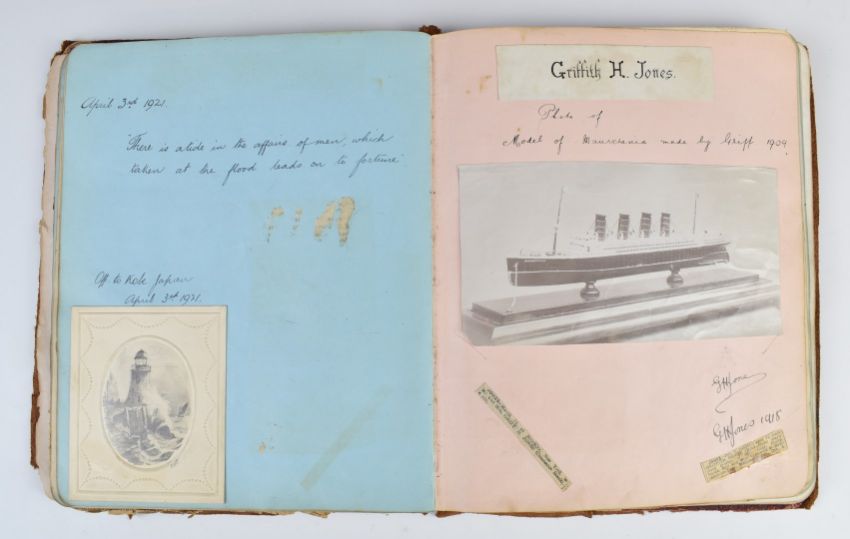 April 3rd 1921.
"There is a tide in the affairs of men, which
taken at the flood leads on to fortune"
Off to Kobe Japan
April 3rd 1921.
Griffith H. Jones.
Photo of
Model of Mauretania made by Griff 1909
GHJones
GHJones 1918